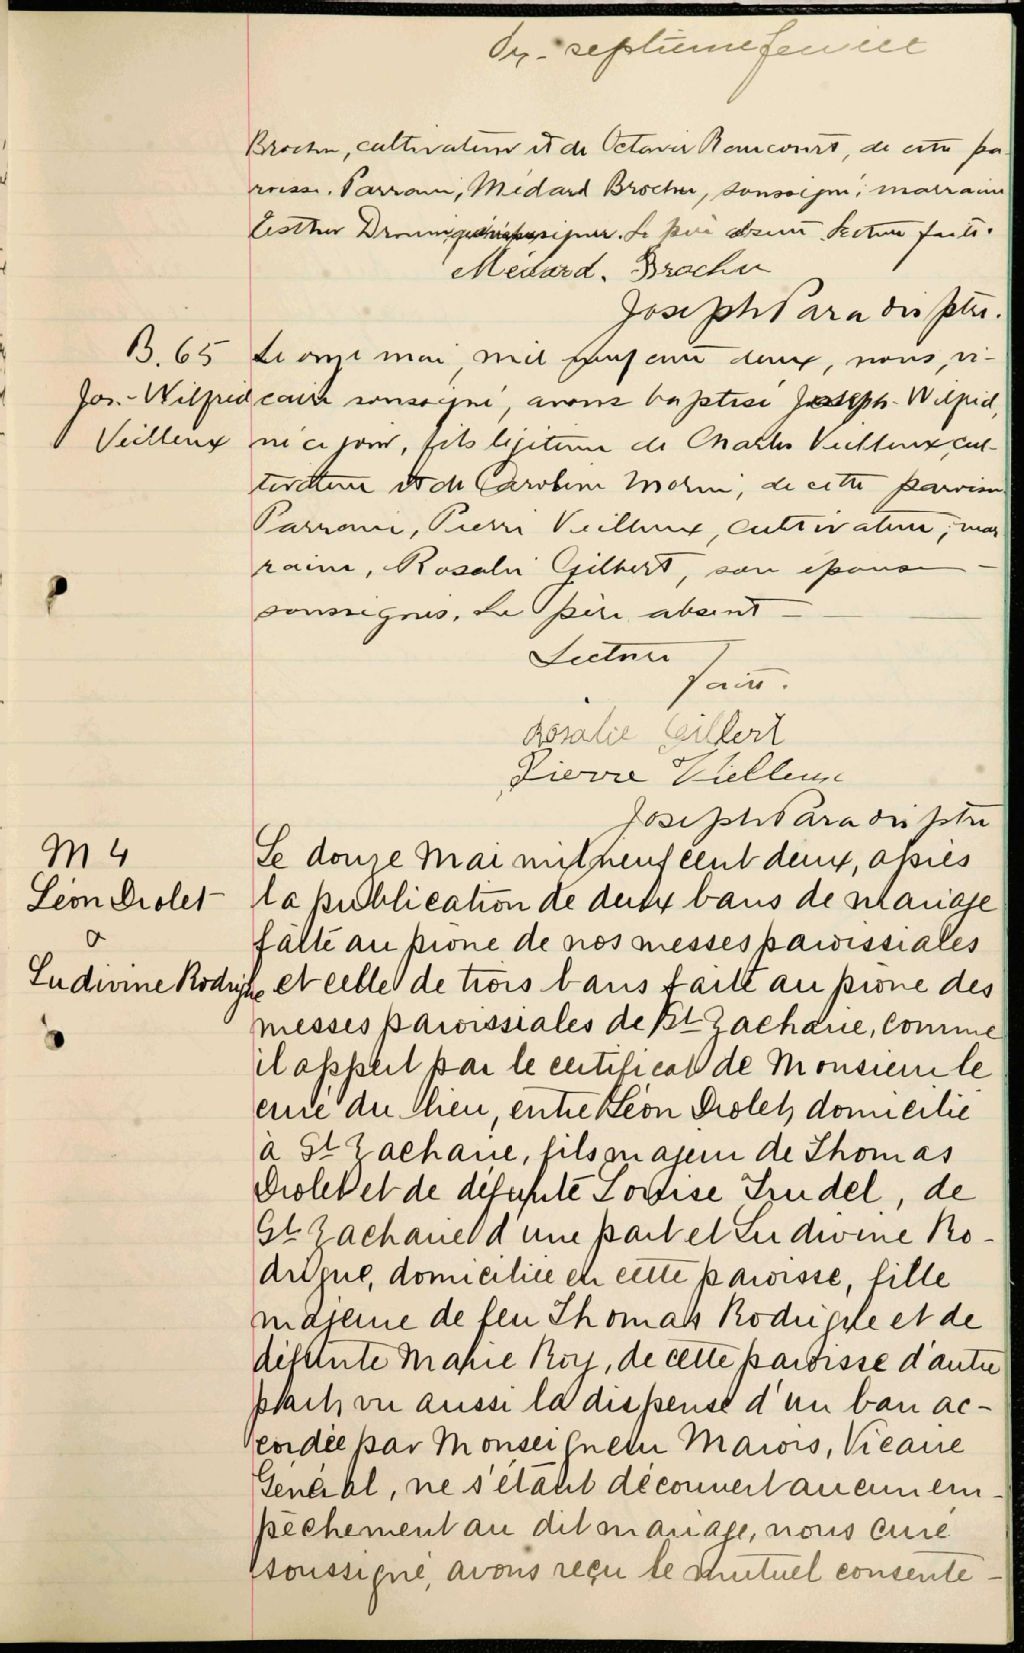 dix-septième feuillet
Brochu, cultivateur et de Octavie Rancourt, de cette pa-
roisse. Parrain, Médard Brochu, soussigné; marraine
Esther Drouin signer. Le père absent. Lecture faite.
Médard. Brochu
Joseph Paradis ptre.
B. 65
Jos.-Wilfrid
Veilleux
Le onze mai, mil neuf cent deux, nous, vi-
caire soussigné, avons baptisé Joseph-Wilfrid,
né ce jour, fils légitime de Charles Veilleux, cul-
tivateur et de Caroline Morin, de cette paroisse.
Parrain, Pierre Veilleux, cultivateur; mar
raine, Rosalie Gilbert, son épouse —
soussignés. Le père absent — — —
Lecture
faite.
Rosalie Gilbert
Pierre Vielleux
Joseph Paradis ptre
M 4
Léon Drolet
&
Ludivine Rodrigue
Le douze Mai mil neuf cent deux, après
la publication de deux bans de mariage
faite au prône de nos messes paroissiales
et celle de trois bans faite au prône des
messes paroissiales de St Zacharie, comme
il appert par le certificat de Monsieur le
curé du lieu, entre Léon Drolet, domicilié
à St Zacharie, fils majeur de Thomas
Drolet et de défunte Louise Trudel, de
St Zacharie d'une part et Ludivine Ro-
drigue, domiciliée en cette paroisse, fille
majeure de feu Thomas Rodrigue et de
défunte Marie Roy, de cette paroisse d'autre
part, vu aussi la dispense d'un ban ac-
cordée par Monseigneur Marois, Vicaire
Général, ne s'étant découvert aucun em-
pêchement au dit mariage, nous curé
soussigné, avons reçu le mutuel consente-